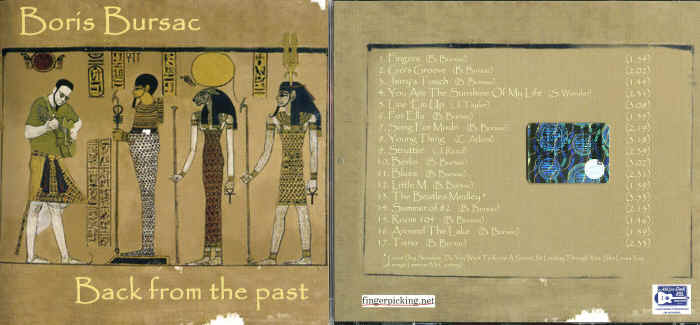 Boris Bursac
Back from the past
1. Fingers (B. Bursac) (1:59)
2. Geo's Groove (B. Bursac) (2:02)
3. Jerry's Touch (B. Bursac)
4. You Are The Sunshine Of My Life (S. Wonder) (2:51)
5. Live 'Em Up (J. Taylor) (3:08)
6. For Ella (B. Bursac) (1:59)
7. Song For Mladn (B. Bursac) (2:19)
8. Young Thing (C. Atkins) (3:18)
9. Struttin' (J. Reed) (1:59)
10. Berko (B. Bursac) (3:02)
11. Blues (B. Bursac) (2:31)
12. Little M (B. Bursac) (1:59)
13. The Beatles Medley * (3:55)
14. Summer of 82 (B. Bursac) (2:15)
15. Room 104 (B. Bursac) (1:46)
16. Around The Lake (B. Bursac) (1:59)
17. Tiana (B. Bursac) (2:55)
fingerpicking.net